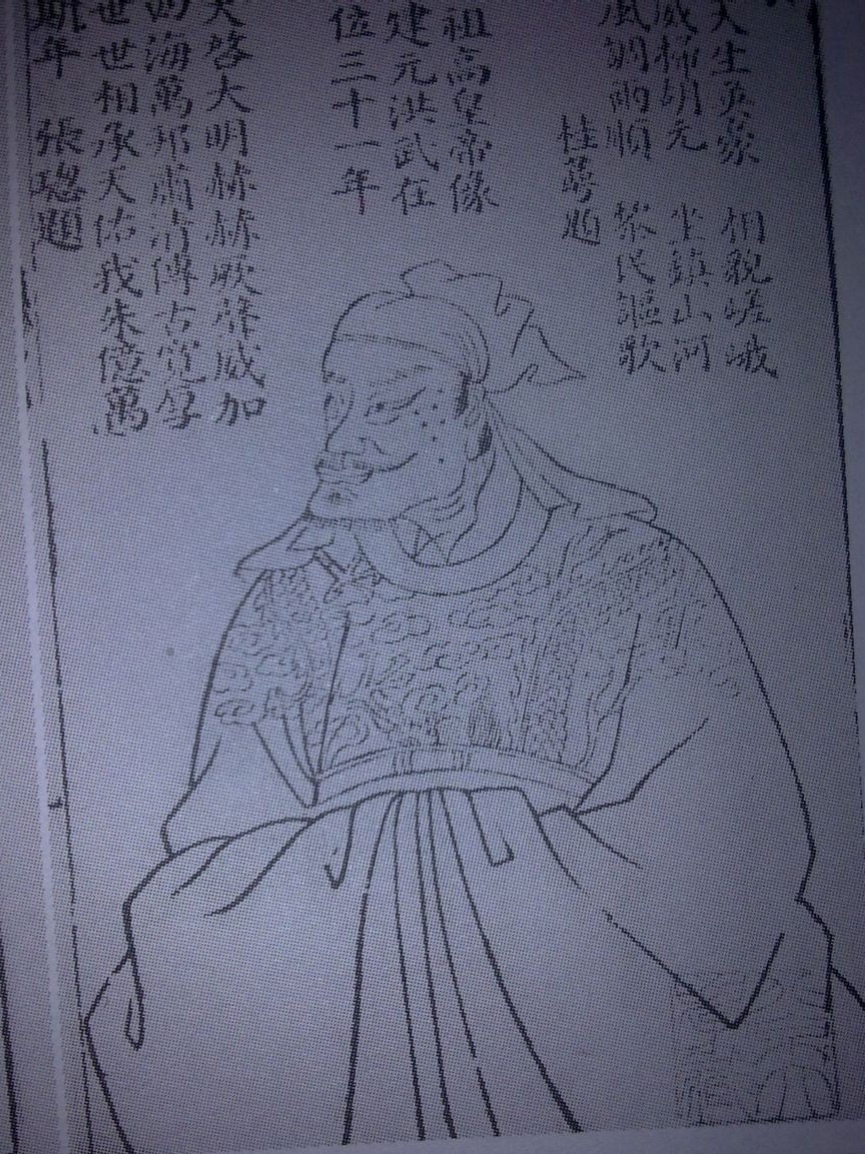 天生英豪 相貌嵯峨
威胡元 坐鎮山河
風調雨順 黎民謳歌
桂萼題
祖高皇帝像
建元洪武在
位三十一年
大啓大明赫赫厥聲威加
四海萬邦肅清古寬厚
世世相承天佑我朱億萬
斯年 張璁題